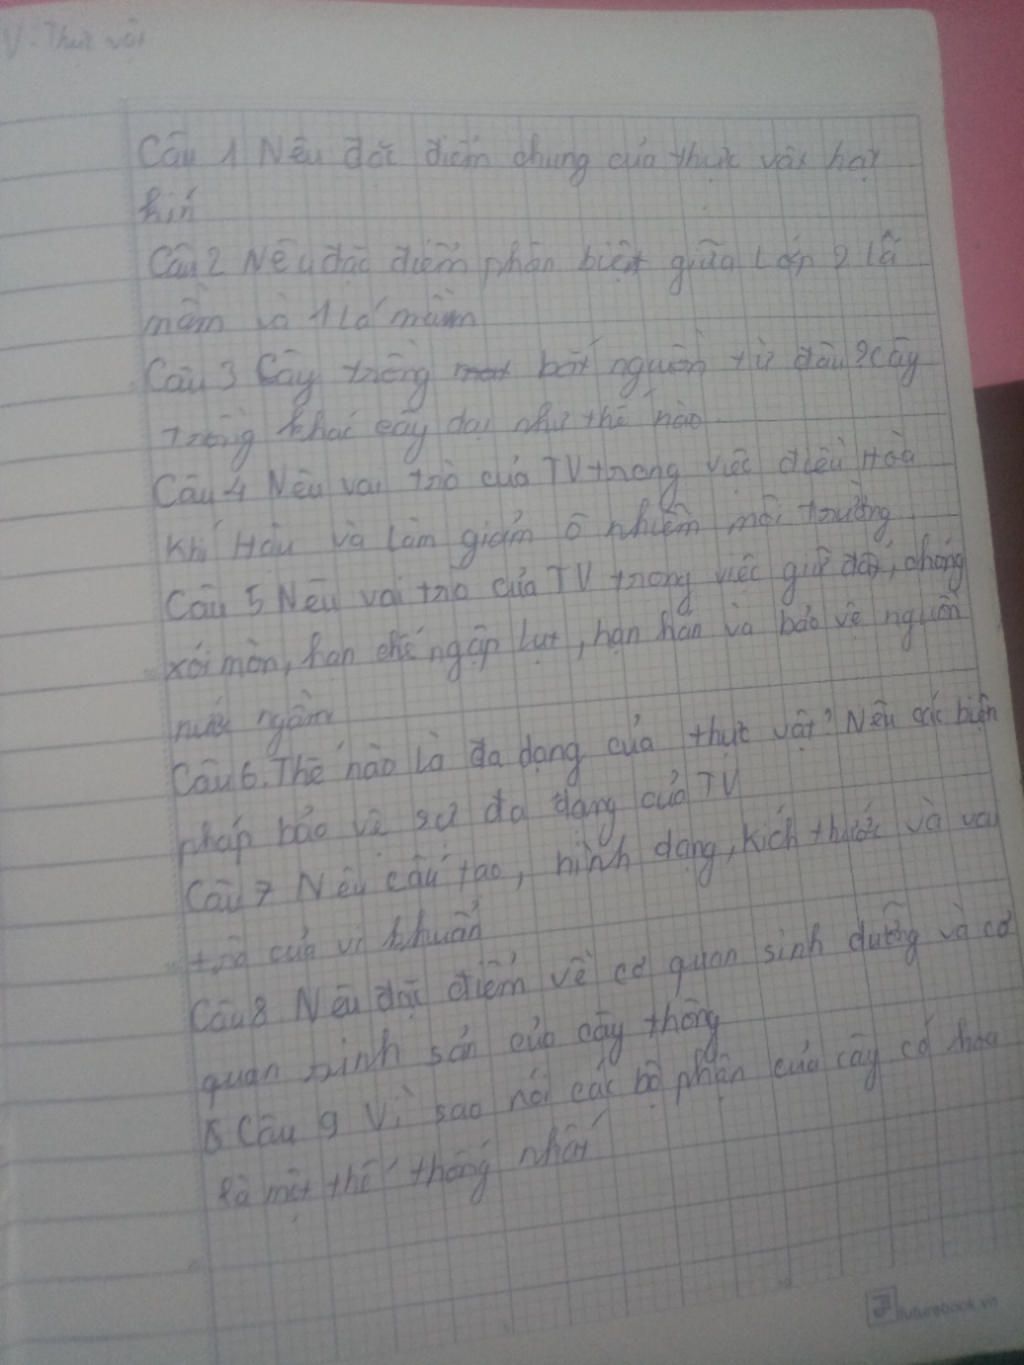 V - Thực vật
Câu 1 Nêu đặc điểm chung của thực vật hạt
kín
Câu 2 Nêu đặc điểm phân biệt giữa Lớp 2 lá
mầm và 1 lá mầm
Câu 3 Cây trồng bắt nguồn từ đâu? cây
trồng khác cây dại như thế nào
Câu 4 Nêu vai trò của TV trong việc điều Hoà
Khí Hậu và làm giảm ô nhiễm môi trường
Câu 5 Nêu vai trò của TV trong việc giữ đất, chống
xói mòn, hạn chế ngập lụt, hạn hán và bảo vệ nguồn
nước ngầm
Câu 6. Thế nào là đa dạng của thực vật? Nêu các biện
pháp bảo vệ sự đa dạng của TV
Câu 7 Nêu cấu tạo, hình dạng, kích thước và vai
trò của vi khuẩn
Câu 8 Nêu đặc điểm về cơ quan sinh dưỡng và cơ
quan sinh sản của cây thông
Câu 9 Vì sao nói các bộ phận của cây có hoa
là một thể thống nhất
futurebook.vn